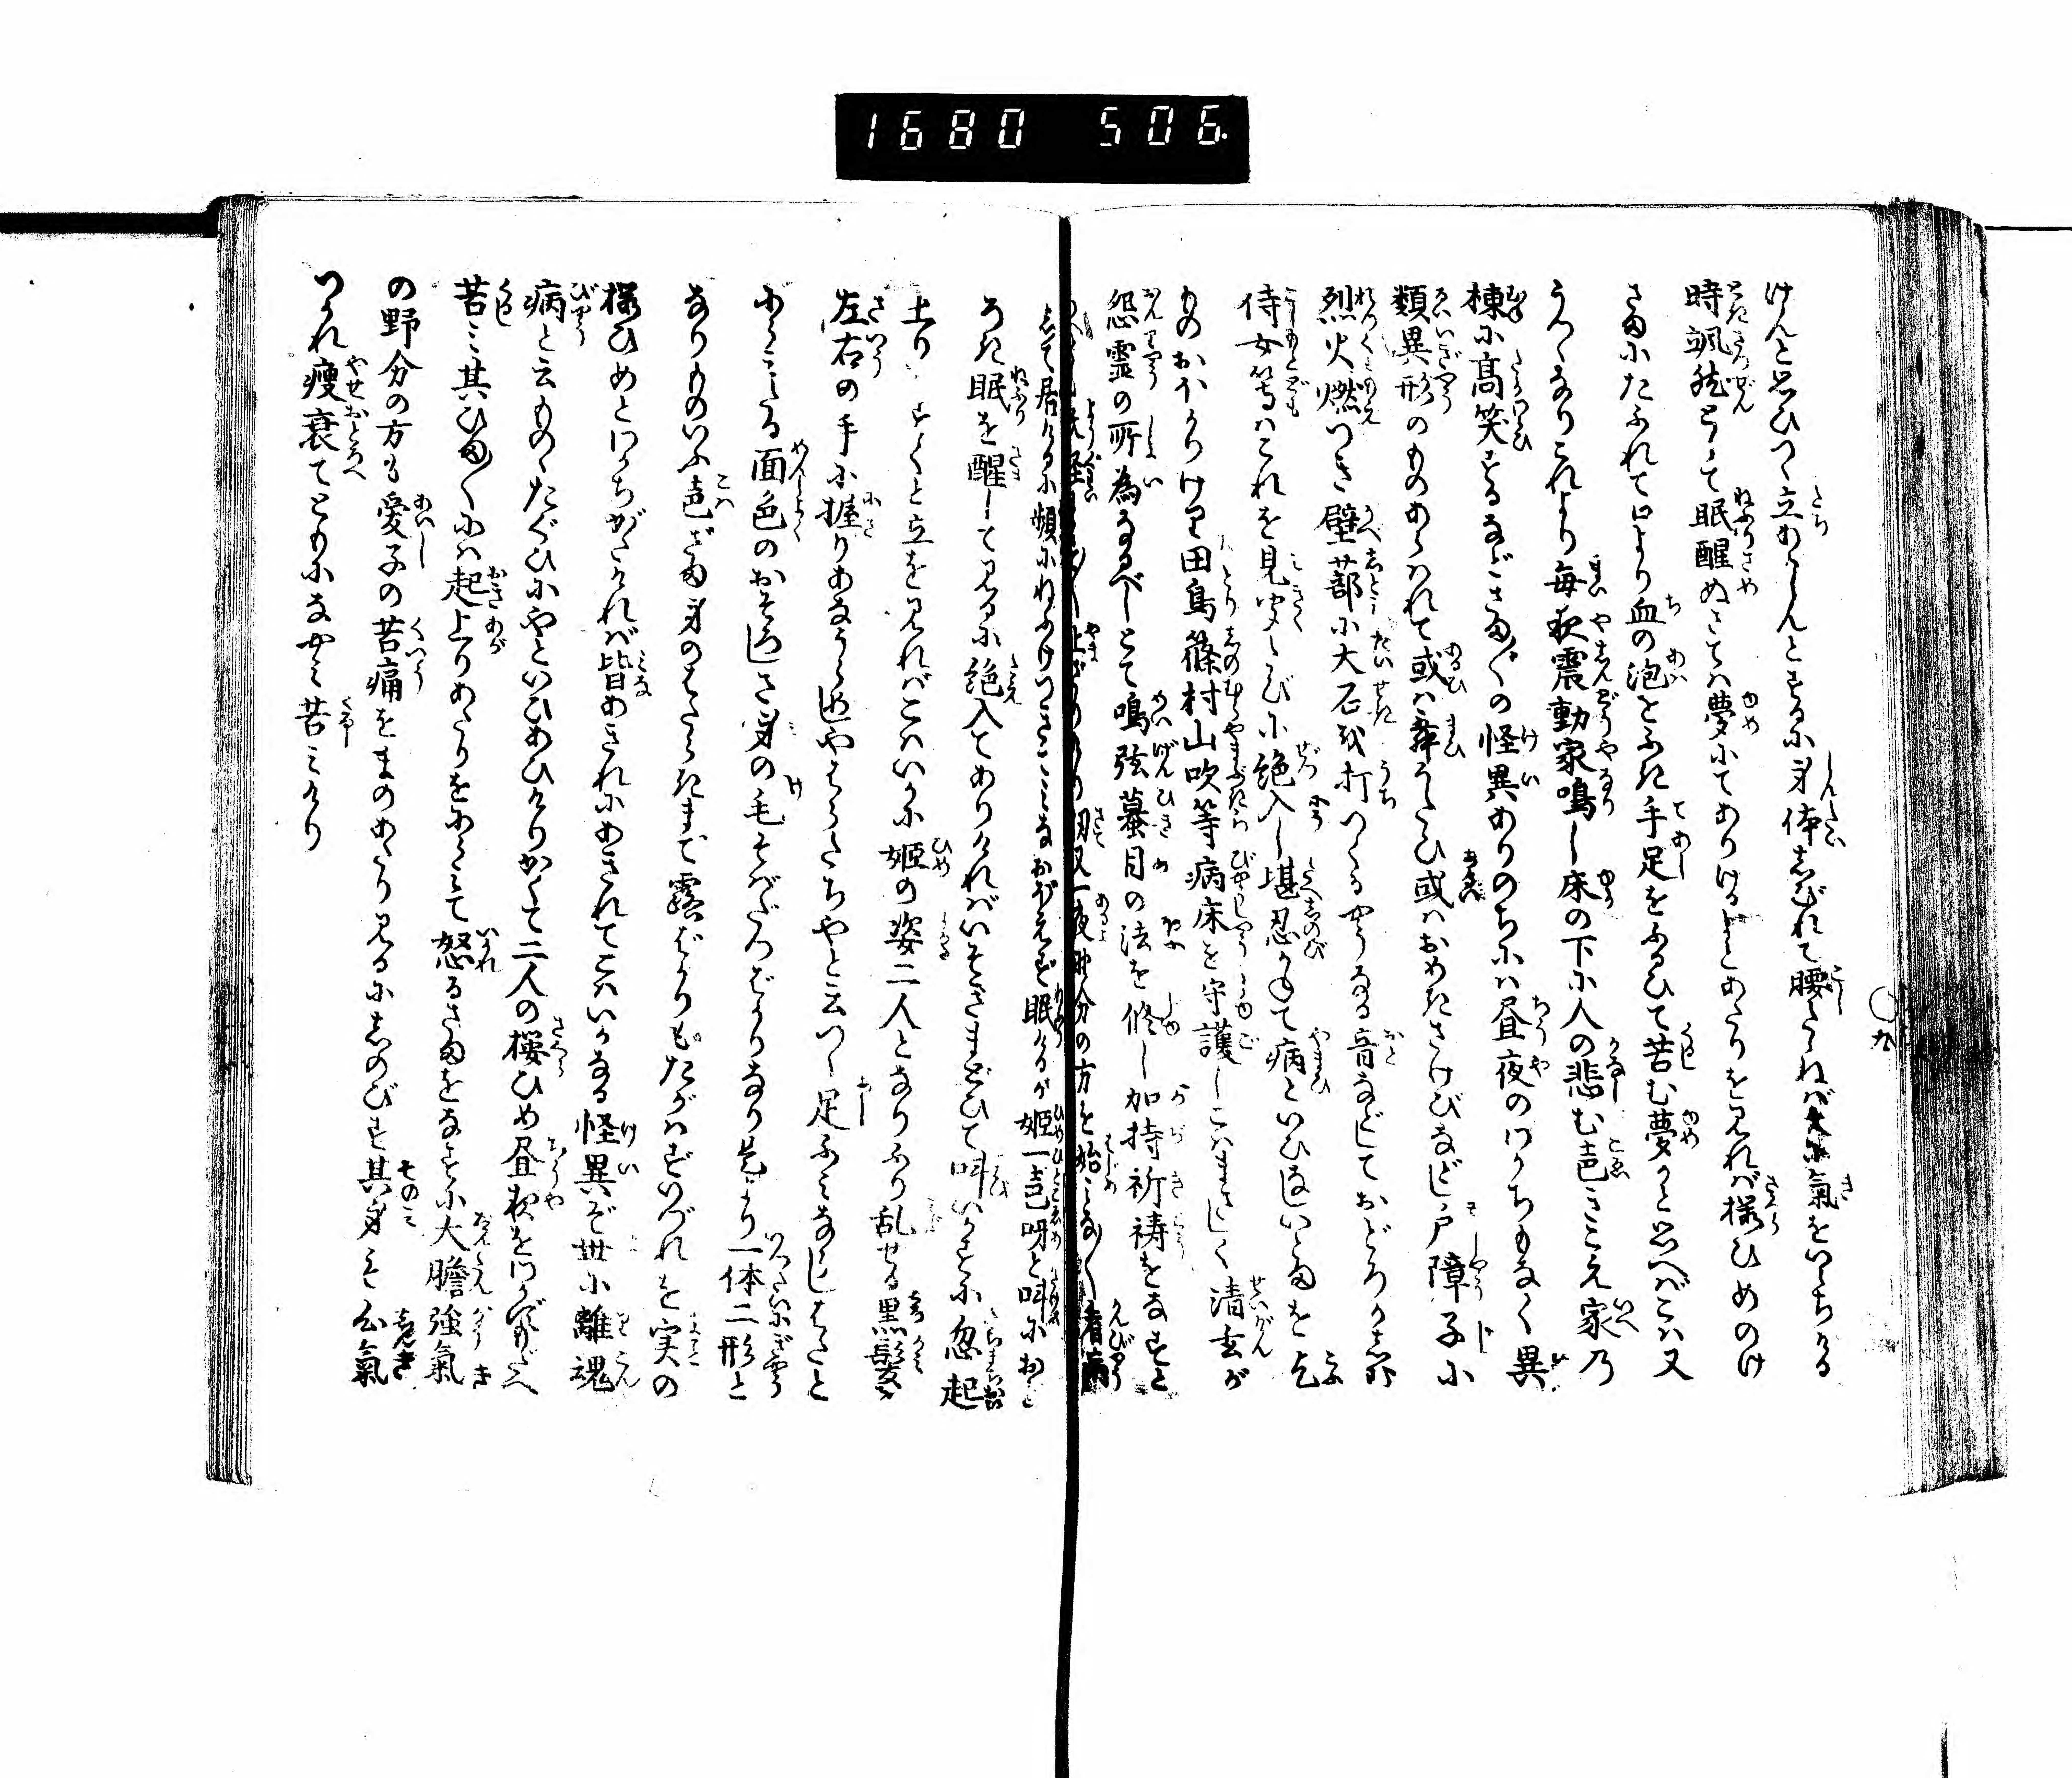 1680 506.
九
けんと思ひつゝ立あがらんとするに身体しびれて腰たゝねば大に氣をいらちける
時颯然として眠醒ぬさては夢にてありけるよとあたりを見れば桜ひめのけ
さまにたふれて口より血の泡をふき手足をふるひて苦む夢かと思へばこは又
うつゝなりこれより毎夜震動家鳴し床の下に人の悲む声きこえ家乃
棟に高笑するなどさま〴〵の怪異ありのちには昼夜のわかちもなく異
類異形のものあらはれて或は舞うたひ或はおめきさけびなどし戸障子に
烈火燃つき壁蔀に大石を打つくるやうなる音などしておどろかしむ
侍女等はこれを見聞たびに絶入し堪忍かねて病といひ立いとまを乞ふ
ものおほかりけり田鳥篠村山吹等病床を守護しこはまさしく清玄が
怨霊の所為なるべしとて鳴弦蟇目の法を修し加持祈祷をなすと
一夜野分の方を始みな〳〵看病
して居けるに頻にねふけつきてみなおぼえず眠けるが姫一声呀と叫におど
ろき眠を醒して見るに絶入てありければいそぎまどひて叫いかすに忽起
上りすく〳〵と立を見ればこはいかに姫の姿二人となりふり乱せる黒髪を
左右の手に握りあなうらめしやはらだちやと云つゝ足ふみならしはたと
にらみたる面色のおそろしさ身の毛もよだつばかりなり是より一体二形と
なりものいふ声ざま身のはたらきまで露ばかりもたがはずいづれを実の
桜ひめとわかちがたければ皆あきれにあきれてこはいかなる怪異ぞ世に離魂
病と云ものゝたぐひにやといひあひけりかくて二人の桜ひめ昼夜をわかずもだへ
苦み其ひま〳〵には起上りあたりをにらみて怒るさまをなすに大膽強氣
の野分の方も愛子の苦痛をまのあたり見るにしのびず其身も心氣
つかれ痩衰てともになやみ苦みけり